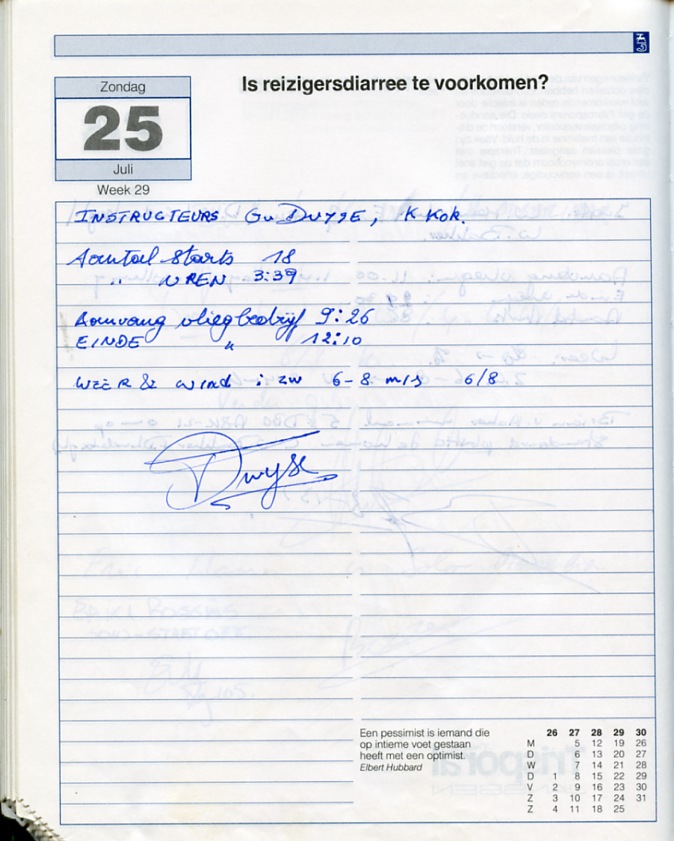 Zondag
25
Juli
Week 29
Is reizigersdiarree te voorkomen?
INSTRUCTEURS G.v DUYSE, K KOK.
Aantal starts 18
" UREN 3:39
Aanvang vliegbedrijf 9:26
EINDE " 12:10
WEER & WIND : ZW 6-8 m/s 6/8
Een pessimist is iemand die
op intieme voet gestaan
heeft met een optimist.
Elbert Hubbard
26 27 28 29 30
M 5 12 19 26
D 6 13 20 27
W 7 14 21 28
D 1 8 15 22 29
V 2 9 16 23 30
Z 3 10 17 24 31
Z 4 11 18 25